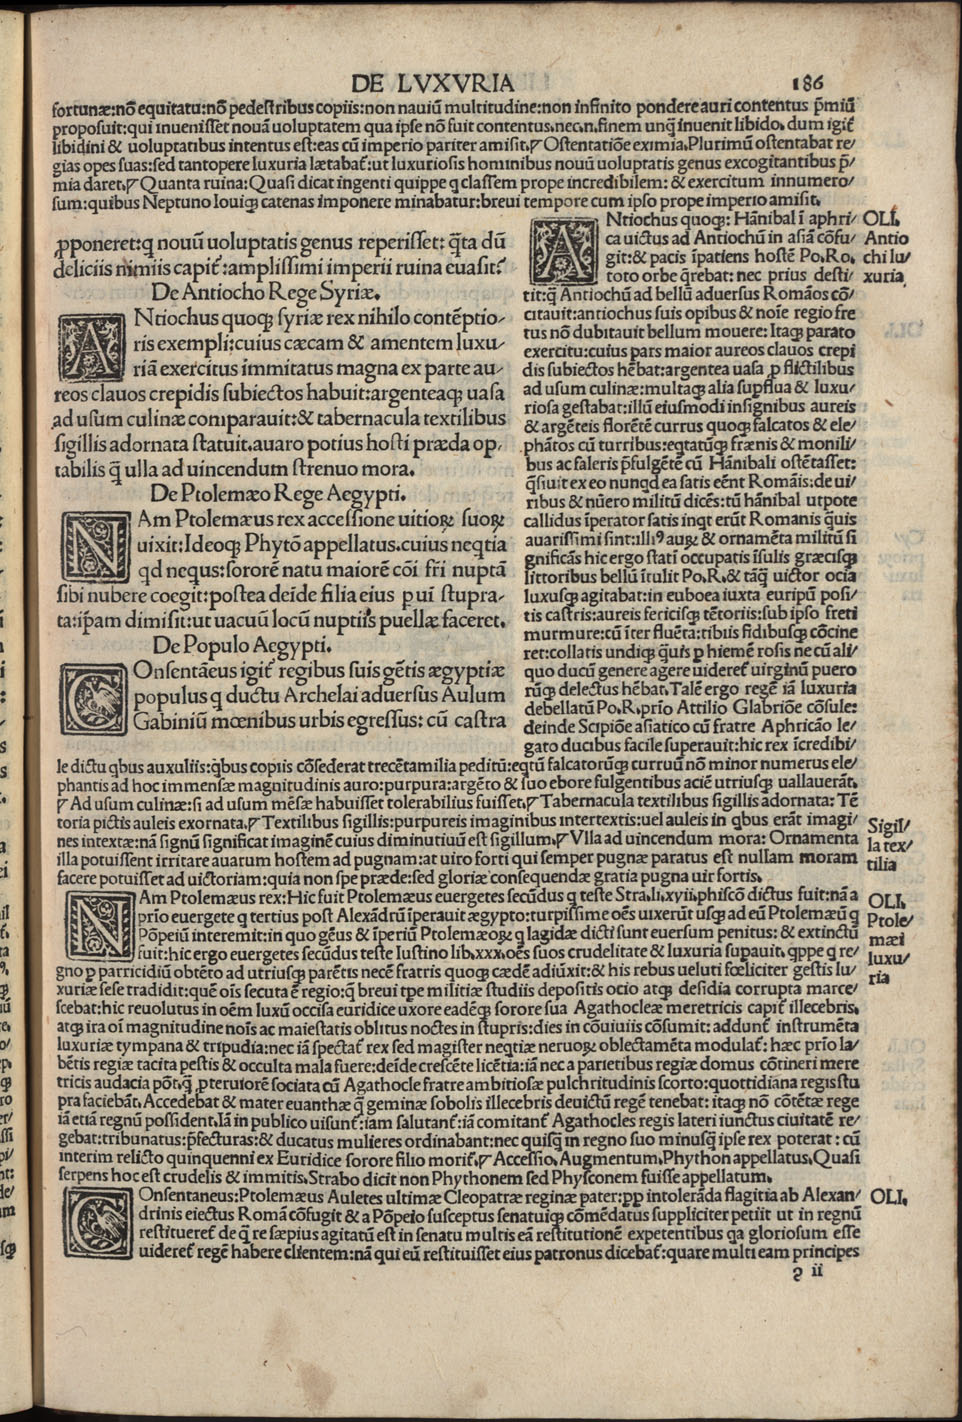 DE LVXVRIA
186
fortunæ:nō equitatu:nō pedestribus copiis:non nauiū multitudine:non infinito pondere auri contentus p̄miū
proposuit:qui inuenisset nouā uoluptatem qua ipse nō fuit contentus.nec.n.finem unq̄ inuenit libido. dum igit̄
libidini & uoluptatibus intentus est:eas cū imperio pariter amisit.⁋Ostentatiōe eximia.Plurimū ostentabat re/
gias opes suas:sed tantopere luxuria lætabat̄:ut luxuriosis hominibus nouū uoluptatis genus excogitantibus p̄/
mia daret.⁋Quanta ruina:Quasi dicat ingenti quippe q classem prope incredibilem: & exercitum innumero/
sum:quibus Neptuno Iouiqꝫ catenas imponere minabatur:breui tempore cum ipso prope imperio amisit.
ꝓponeret:q nouū uoluptatis genus reperisset: q̄ta dū
deliciis nimiis capit̄:amplissimi imperii ruina euasit?
De Antiocho Rege Syriæ.
ANtiochus quoqꝫ syriæ rex nihilo contēptio/
ris exempli:cuius cæcam & amentem luxu/
riā exercitus immitatus magna ex parte au/
reos clauos crepidis subiectos habuit:argenteaqꝫ uasa
ad usum culinæ comparauit:& tabernacula textilibus
sigillis adornata statuit.auaro potius hosti præda op/
tabilis q̄ ulla ad uincendum strenuo mora.
De Ptolemæo Rege Aegypti.
NAm Ptolemæus rex accessione uitioꝝ suoꝝ
uixit:Ideoqꝫ Phytō appellatus.cuius neqtia
qd nequs:sororē natu maiorē cōi fr̄i nuptā
sibi nubere coegit:postea deīde filia eius ꝑ uī stupra/
ta:ip̄am dimisit:ut uacuū locū nuptiis puellæ faceret.
De Populo Aegypti.
COnsentāeus igit̄ regibus suis gētis ægyptiæ
populus q ductu Archelai aduersus Aulum
Gabiniū mœnibus urbis egressus: cū castra
ANtiochus quoqꝫ: Hānibal ī aphri/
ca uictus ad Antiochū in asiā cōfu/
git:& pacis īpatiens hostē Po.Ro.
toto orbe q̄rebat: nec prius desti/
tit:q̄ Antiochū ad bellū aduersus Romāos cō/
citauit:antiochus suis opibus & noīe regio fre
tus nō dubitauit bellum mouere: Itaqꝫ parato
exercitu:cuius pars maior aureos clauos crepi
dis subiectos hēbat:argentea uasa ꝓ flictilibus
ad usum culinæ:multaqꝫ alia supflua & luxu/
riosa gestabat:illū eiusmodi insignibus aureis
& argēteis florētē currus quoqꝫ falcatos & ele/
phātos cū turribus:eqtatūqꝫ frænis & monili/
bus ac faleris p̄fulgētē cū Hānibali ostētasset:
q̄siuit ex eo nunqd ea satis eēnt Romāis:de ui/
ribus & nūero militū dicēs:tū hānibal utpote
callidus īperator satis inqt erūt Romanis q̄uis
auarissimi sint:illiꝰ auꝝ & ornamēta militū si
gnificās hic ergo statī occupatis īsulis græcisqꝫ
littoribus bellū ītulit Po.R.& tāq̄ uictor ocia
luxusqꝫ agitabat:in euboea iuxta euripū posi/
tis castris:aureis sericisqꝫ tētoriis:sub ipso freti
murmure:cū īter fluēta:tibiis fidibusqꝫ cōcine
ret:collatis undiqꝫ q̄uis ꝑ hiemē rosis ne cū ali/
quo ducū genere agere uideret̄ uirginū puero
rūqꝫ delectus hēbat.Talē ergo regē iā luxuria
debellatū Po.R.prīo Attilio Glabriōe cōsule:
deinde Scipiōe asiatico cū fratre Aphricāo le/
gato ducibus facile superauit:hic rex īcredibi/
OLI.
Antio
chi lu/
xuria
le dictu qbus auxuliis:q̄bus copiis cōsederat trecēta milia peditū:eqtū falcatorūqꝫ curruū nō minor numerus ele/
phantis ad hoc immensæ magnitudinis auro:purpura:argēto & suo ebore fulgentibus aciē utriusqꝫ uallauerāt.
⁋Ad usum culinæ:si ad usum mēsæ habuisset tolerabilius fuisset.⁋Tabernacula textilibus sigillis adornata: Tē
toria pictis auleis exornata.⁋Textilibus sigillis:purpureis imaginibus intertextis:uel auleis in qbus erāt imagi/
nes intextæ:nā signū significat imaginē cuius diminutiuū est sigillum.⁋Vlla ad uincendum mora: Ornamenta
illa potuissent irritare auarum hostem ad pugnam:at uiro forti qui semper pugnæ paratus est nullam moram
facere potuisset ad uictoriam:quia non spe præde:sed gloriæ consequendæ gratia pugna uir fortis.
Sigil/
la tex/
tilia
NAm Ptolemæus rex:Hic fuit Ptolemæus euergetes secūdus q teste Stra.li.xyii.phiscō dictus fuit:nā a
prīo euergete q tertius post Alexādrū īperauit ægypto:turpissime oēs uixerūt usqꝫ ad eū Ptolemæū q
Pōpeiū interemit:in quo gēus & īperiū Ptolemæoꝝ q lagidæ dicti sunt euersum penitus: & extinctū
fuit:hic ergo euergetes secūdus teste Iustino lib.xxx.oēs suos crudelitate & luxuria supauit.qppe q re/
gno ꝑ parricidiū obtēto ad utriusqꝫ parētis necē fratris quoqꝫ cædē adiūxit:& his rebus ueluti fœliciter gestis lu/
xuriæ sese tradidit:quē oīs secuta ē regio:q̄ breui tꝑe militiæ studiis depositis ocio atqꝫ desidia corrupta marce/
scebat:hic reuolutus in oēm luxū occisa euridice uxore eadēqꝫ sorore sua Agathocleæ meretricis capit̄ illecebris.
atqꝫ ira oī magnitudine noīs ac maiestatis oblitus noctes in stupris:dies in cōuiuiis cōsumit: addunt̄ instrumēta
luxuriæ tympana & tripudia:nec iā spectat̄ rex sed magister neqtiæ neruoꝝ oblectamēta modulat̄: hæc prīo la/
bētis regiæ tacita pestis & occulta mala fuere:deīde crescēte licētia:iā nec a parietibus regiæ domus cōtineri mere
tricis audacia pōt.q̄ ꝓteruiorē sociata cū Agathocle fratre ambitiosæ pulchritudinis scorto:quottidiana regis stu
pra faciebāt.Accedebat & mater euanthæ q̄ geminæ sobolis illecebris deuictū regē tenebat: itaqꝫ nō cōtētæ rege
iā etiā regnū possident.iā in publico uisunt̄:iam salutant̄:iā comitant̄ Agathocles regis lateri iunctus ciuitatē re/
gebat:tribunatus:p̄fecturas:& ducatus mulieres ordinabant:nec quisq̄ in regno suo minusq̄ ipse rex poterat : cū
interim relicto quinquenni ex Euridice sorore filio morit̄.⁋Accessio.Augmentum.Phython appellatus.Quasi
serpens hoc est crudelis & immitis.Strabo dicit non Phythonem sed Physconem fuisse appellatum.
OLI.
Ptole/
mæi
luxu/
ria
COnsentaneus:Ptolemæus Auletes ultimæ Cleopatræ reginæ pater:ꝓp intolerāda flagitia ab Alexan/
drinis eiectus Romā cōfugit & a Pōpeio susceptus senatuiqꝫ cōmēdatus suppliciter petiit ut in regnū
restitueret̄ de q̄ re sæpius agitatū est in senatu multis eā restitutionē expetentibus qa gloriosum esse
uideret̄ regē habere clientem:nā qui eū restituisset eius patronus dicebat̄:quare multi eam principes
OLI.
ii